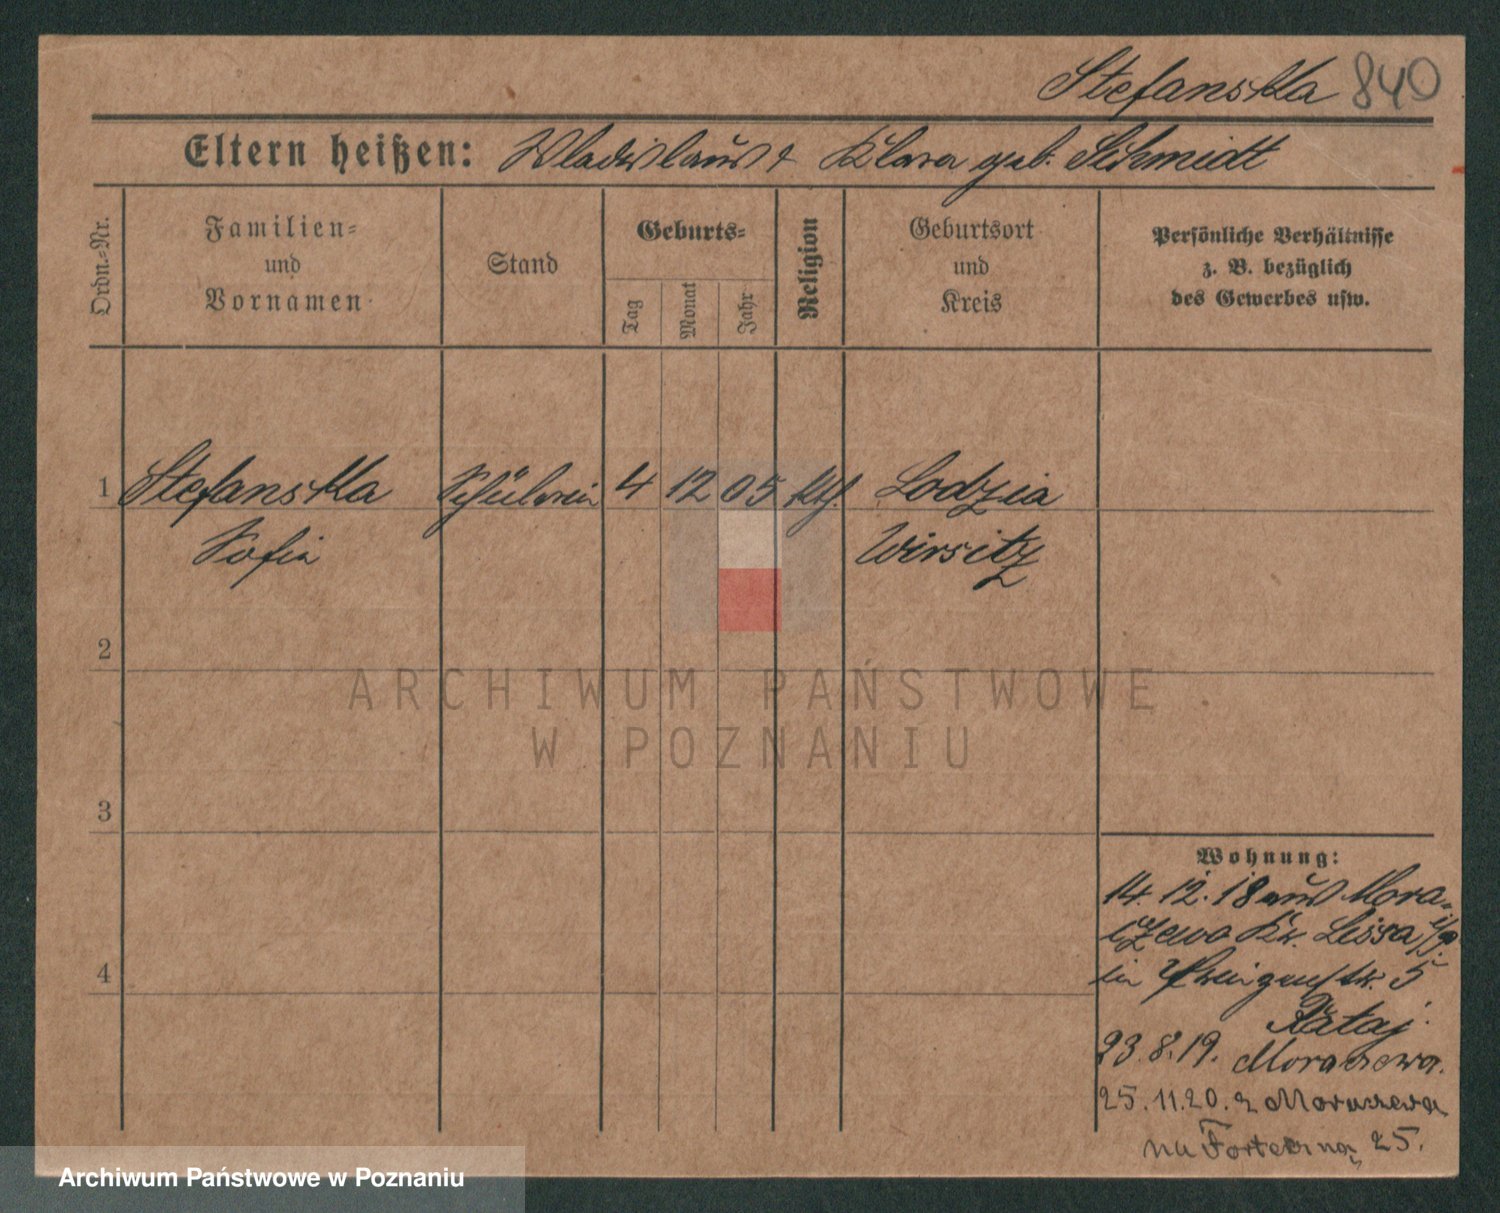 Stefanska 840
Eltern heißen: Wladislaus & Klara geb. Schmidt
Ordn.-Nr.
Familien-
und
Vornamen
Stand
Geburts-
Tag
Monat
Jahr
Religion
Geburtsort
und
Kreis
Persönliche Verhältnisse
z. B. bezüglich
des Gewerbes usw.
1 Stefanska Schülerin 4 12 05 kth. Lodzia
Sofia Wirsitz
2
3
4
Wohnung:
14. 12. 18 aus Mora-
czewo Kr. Lissa i/P.
in str. 5
Rataj
23. 8. 19. Moraczewo.
25. 11. 20. z Moraczewa
na Forteczną 25.
ARCHIWUM PAŃSTWOWE
W POZNANIU
Archiwum Państwowe w Poznaniu